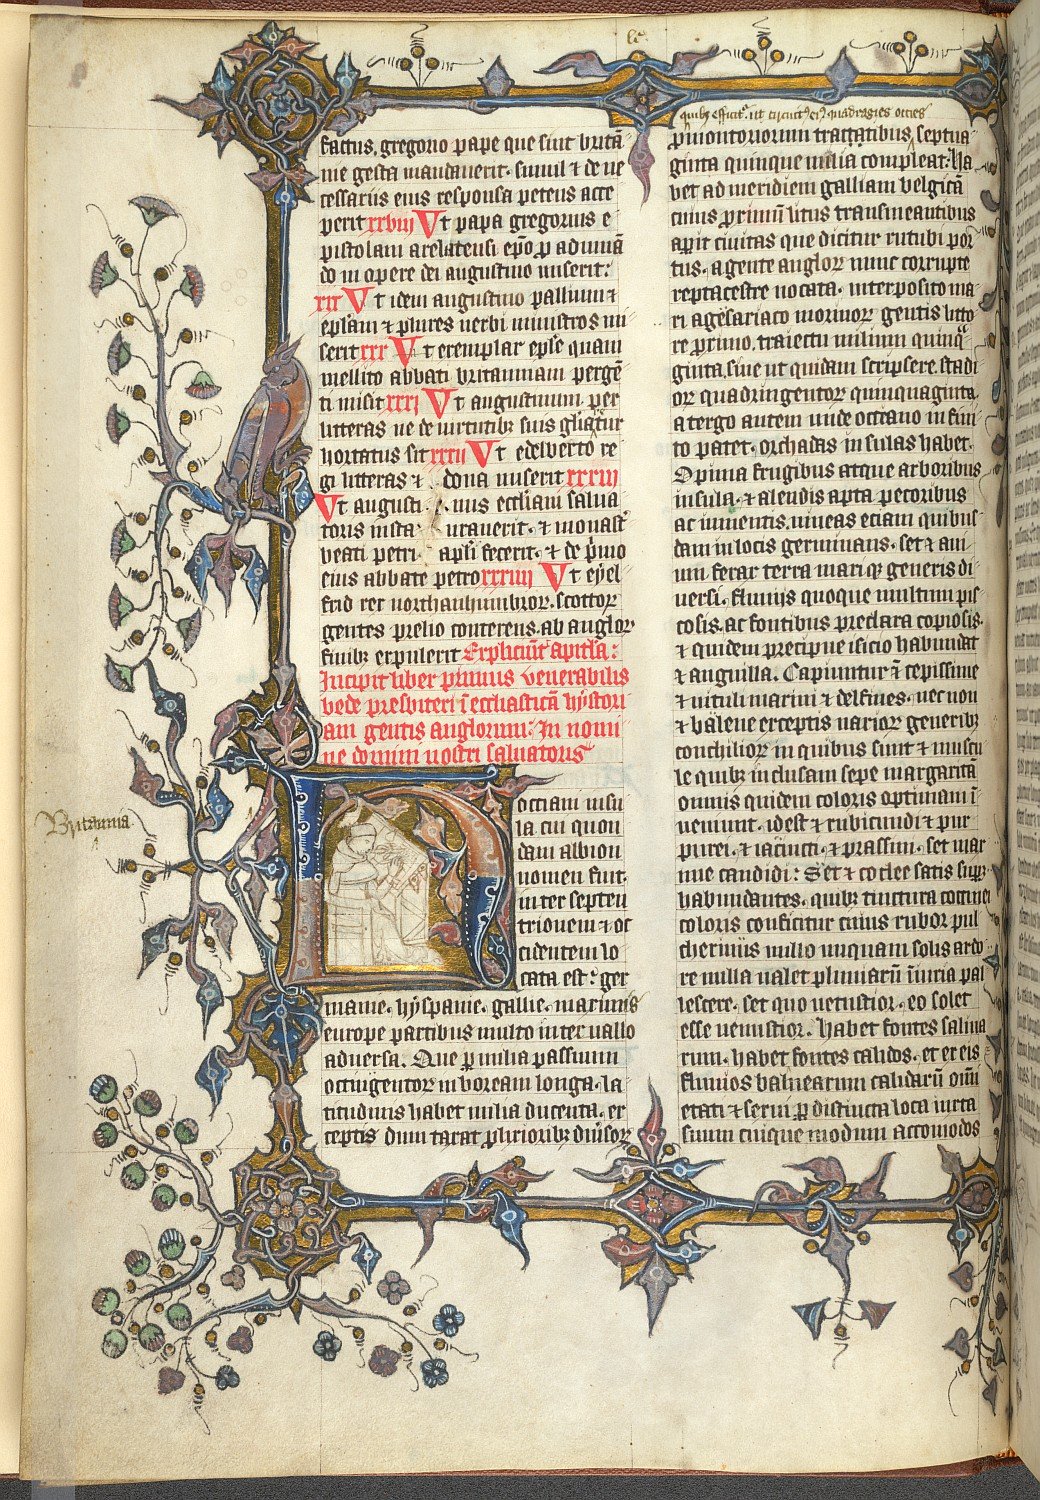 factus, gregorio pape que sint britā
nie gesta mandauerit. simul & de ne
cessariis eius responsa petens acce
perit xxviii Vt papa gregorius e
pistolam arelatensi ep̄o p̱ adiuuā
do in opere dei augustino miserit:
xxix Vt idem augustino pallium &
epl̄am & plures uerbi ministros mi
serit xxx Vt exemplar epl̄e quam
mellito abbati britanniam pergē
ti misit xxxi Vt augustinum per
litteras ne de uirtutibꝫ suis gl̄iatur
hortatus sit xxxii Vt edelberto re
gi litteras & dona miserit xxxiii
Vt augustinus eccl̄iam salua
toris instaurauerit. & monast̄
beati petri apl̄i fecerit. & de p̄mo
eius abbate petro xxxiiii Vt eþel
frid rex northanhumbroꝝ. scottoꝝ
gentes prelio conterens. ab angloꝝ
finibꝫ expulerit Expliciūt capitl̄a:
Incipit liber primus venerabilis
bede presbiteri ī eccl̄iasticā hystori
am gentis anglorum: In nomi
ne domini nostri saluatoris
Britannia
H occiani insu
la cui quon
dam albion
nomen fuit.
inter septen
trionem & oc
cidentem lo
cata est: ger
manie. hyspanie. gallie. maximis
europe partibus multo interuallo
aduersa. Que p̱ milia passuum
octingentoꝝ in boream longa. la
titudinis habet milia ducenta. ex
ceptis dum taxat p̱lixioribꝫ diuisoꝝ
quibꝫ efficit᷑ ut circuit᷒ ei᷒ quadragies octies
p̱montoriorum tractatibus, septua
ginta quinque milia compleat: Ha
bet ad meridiem galliam belgicā
cuius p̱ximū litus transmeantibus
ap̱it ciuitas que dicitur rutubi por
tus. a gente angloꝝ nunc corrupte
reptacestre uocata. interposito ma
ri a gesariaco morinoꝝ gentis litto
re p̱ximo, traiectu milium quinq̄
ginta, siue ut quidam scripsere. stadi
oꝝ quadringentoꝝ quinquaginta.
a tergo autem unde occeano infini
to patet. orchadas insulas habet.
Opima frugibus atque arboribus
insula. & alendis apta pecoribus
ac iumentis. uineas etiam quibus
dam in locis germinans. set & aui
um ferax terra mariqꝫ generis di
uersi. fluuiis quoque multum pis
cosis. ac fontibus preclara copiosis.
& quidem precipue isicio habundat
& anguilla. Capiuntur ⁊̄ sepissime
& uituli marini & delfines. nec non
& balene exceptis uarioꝝ generibꝫ
conchilioꝝ in quibus sunt & muscu
le quibꝫ inclusam sepe margaritā
omnis quidem coloris optimam ī
ueniunt. idest & rubicundi & pur
purei. & iacincti. & prassini. set max
ime candidi: Set & coclee satis suꝑꝫ
habundantes. quibꝫ tinctura coccinei
coloris conficitur cuius rubor pul
cherimus nullo unquam solis ardo
re nulla ualet pluuiarū iniuria pal
lescere. set quo uetustior. eo solet
esse uenustior. Habet fontes salina
rum. habet fontes calidos. et ex eis
fluuios balnearum calidarū omī
etati & sexui p̱ distincta loca iuxta
suum cuique modum accomodos